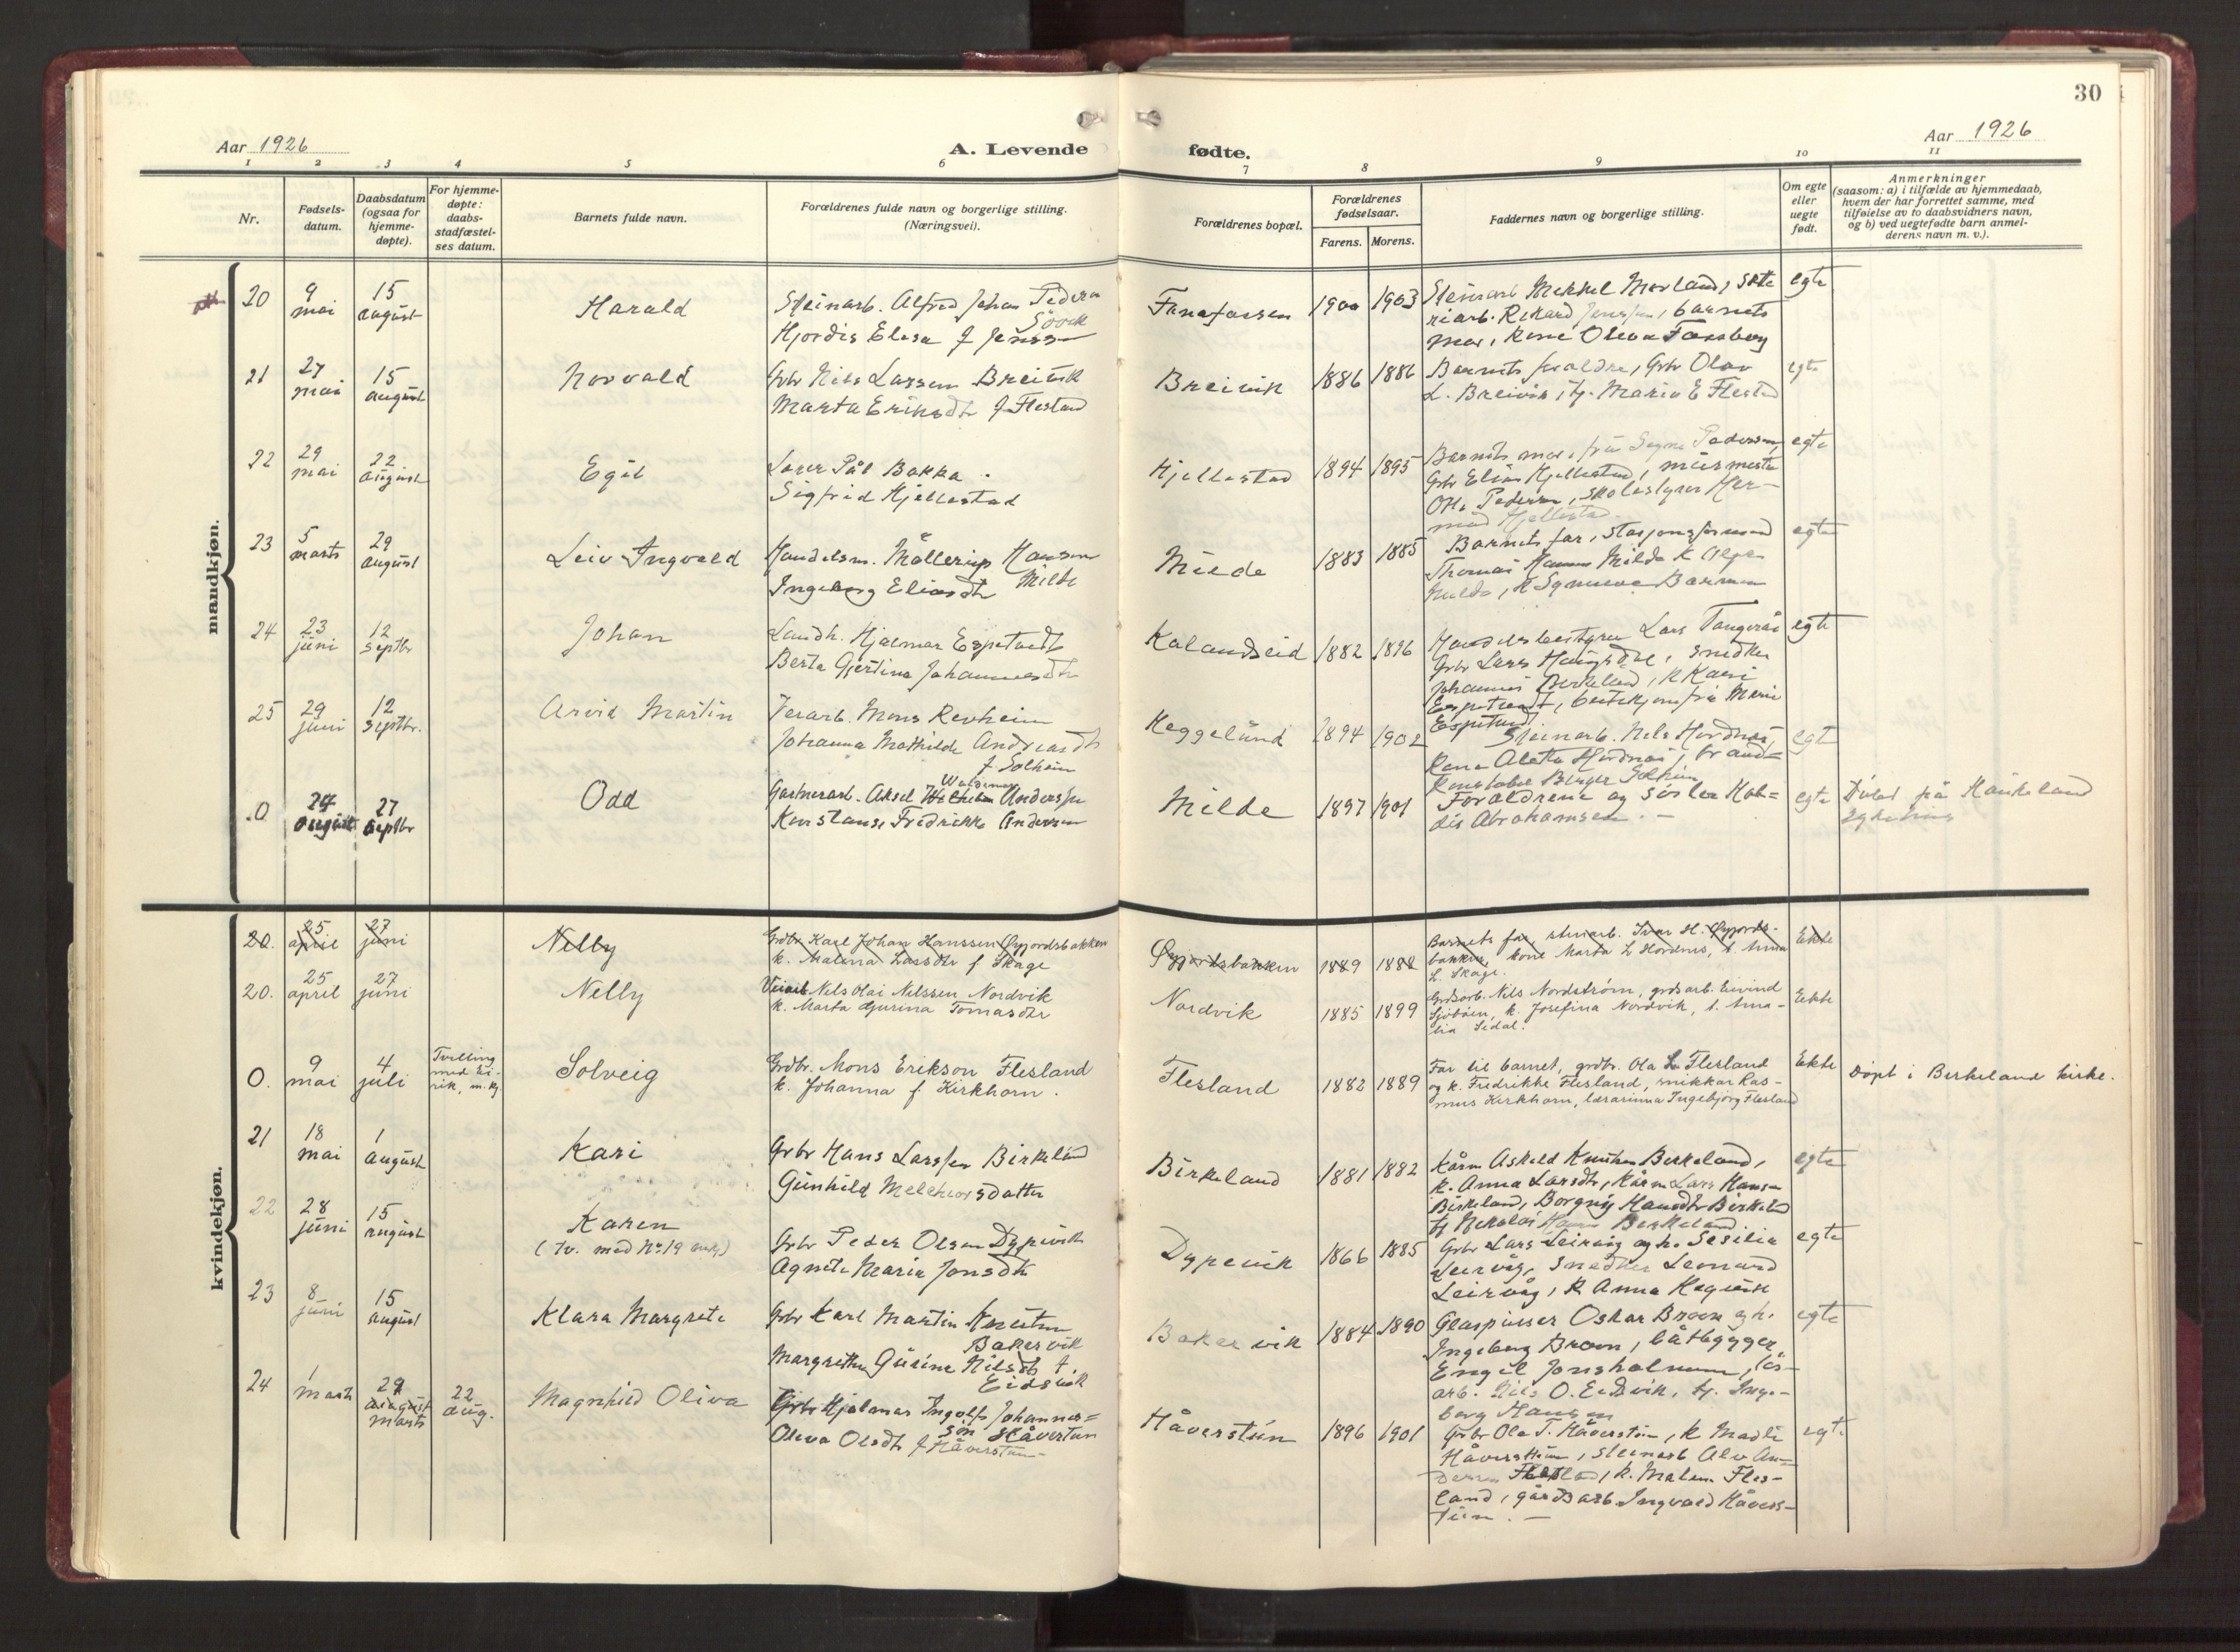 30
Aar 1926
A. Levende
fødte.
Aar 1926
1 2 3 4 5 6 7 8 9 10 11
Nr.
Fødsels-
datum.
Daabsdatum
(ogsaa for
hjemme-
døpte).
For hjemme-
døpte:
daabs-
stadfæstel-
ses datum.
Barnets fulde navn.
Forældrenes fulde navn og borgerlige stilling.
(Næringsvei).
Forældrenes bopæl.
Forældrenes
fødselsaar.
Farens. Morens.
Faddernes navn og borgerlige stilling.
Om egte
eller
uegte
født.
Anmerkninger
(saasom: a) i tilfælde av hjemmedaab,
hvem der har forrettet samme, med
tilføielse av to daabsvidners navn,
og b) ved uegtefødte barn anmel-
derens navn m. v.).
mandkjøn.
20
9
mai
15
august
Harald
Steinarb. Alfred Johan Pedersen
Hjordis Elisa f Jenss
Fanafossen
1900 1903
barnets
mor, Kone Oleva Fossberg
egte
21
27
mai
15
august
Norvald
Grbr Nils Larsen Breivik
Marta Eriksdtr f Flesland
Breivik
1886 1886
Barnets foreldre, Grbr Olav
L. Breivik, Maria E Flesland
egte
22
29
mai
22
august
Egil
Lærer Pål Bakka
Sigfrid Hjellestad
Hjellestad
1894 1895
Barnets mor, frå Signe Pedersen,
Grbr Elias Hjellestad, murmester
Ole Pedersen, skolestyrer Her-
mod Hjellestad.
egte
23
5
marts
29
august
Leiv Ingvald
Handelsm. Møllerup Hansen
Milde
Ingeborg Eliasdtr
Milde
1883 1885
Barnets far, Stasjonsformand
Thomas Hansen Milde
egte
24
23
juni
12
septbr
Johan
Landh. Hjalmar Espetvedt
Berta Gjertina Johannesdtr
Kalandseid
1882 1896
Handelsbestyrer Lars Tangerås
Grbr Lars Haugsdal, snedker
Johannes Birkeland, k Kari
Espetvedt, bestekjона frå Marie
Espetvedt.
egte
25
29
juni
12
Septbr.
Arvid Martin
Jerarb. Mons Revheim
Johanna Mathilde Andreasdtr
f. Solheim
Heggelund
1894 1902
Steinarb. Nils Hordnes
Kona Aletta Hordnes, brand-
Konstabel Birger Solheim
egte
0
24
august
27
septbr
Odd
Waldemar
Gartnerarb. Aksel Wilhelm Andersen
Konstanse Fredrikke Andersen
Milde
1897 1901
Foreldrene og søster Hal-
dis Abrahamsen. —
egte
Døbt på Haukeland
Sykehus
kvindekjøn.
20.
25
april
27
juni
Nelly
Grdbr. Karl Johan Hanssen Øyjordsbakken
k. Malena Larsdtr f Skage
Øyjordsbakken
1889 1888
Barnets far, steinarb. Ivar H. Øyjords-
bakken, kone Marta L Hordnes, t. Anna
L. Skage.
Ekte
20.
25
april
27
juni
Nelly
Veiarb. Nils Olai Nilssen Nordvik
k. Marta Gjurina Tomasdtr
Nordvik
1885 1899
Grdsarb. Nils Nordstrøm, grdsarb. Eivind
Sjobøen, k. Josefina Nordvik, t. Ama-
lia Sidal.
Ekte
0.
9
mai
4
juli
Tvilling
med Ei-
rik, m. kj.
Solveig
Grdbr. Mons Erikson Flesland
k. Johanna f. Kirkhorn.
Flesland
1882 1889
Far til barnet, grdbr. Ola L Flesland
og k. Fredrikke Flesland, snikkar Ras-
mus Kirkhorn, lærarinna Ingebjørg Flesland
Ekte
Døpt i Birkeland kirke.
21
18
mai
1
august
Kari
Grbr Hans Larssen Birkeland
Gunhild Melchiorsdatter
Birkeland
1881 1882
Kårm Askeld Knutsen Birkeland,
k. Anna Larsdtr, Kårm Lars Hansen
Birkeland, Borgny Hansdtr Birkeland
Nikolai Hansen Birkeland
egte
22
28
juni
15
august
Karen
(Tv. med No 19 m.k.)
Grbr Peder Olsen Dypevik
Agnete Marie Jonsdtr
Dypevik
1866 1885
Grbr Lars Leirvåg og h. Sesilie
Leirvåg, Snedker Leonard
Leirvåg, k Anna Hegvik
egte
23
8
juni
15
august
Klara Margrete
Grbr Karl Martin Knutsen
Bakervik
Margrethe Gurine Nilsdtr f.
Eidsvik
Bakervik
1884 1890
Glaspusser Oskar Broen og h.
Ingeborg Broen, båtbygger
Engel Jonsholmen, løs-
arb. Nils O. Eidsvik, tj. Inge-
borg Hansen
egte
24
1
marts
29
august
marts
22
aug.
Magnhild Oliva
Grbr Hjalmar Ingolf Johannes-
sen Håvertun
Oleva Olsdtr f Håverstun
Håverstun
1896 1901
Grbr Ola T. Håverstun, k Madli
Håverstun, Steinarb Alv An-
dersen Flesland, k. Malene Fles-
land, gårdsarb. Ingvald Håvers-
tun. —
egte